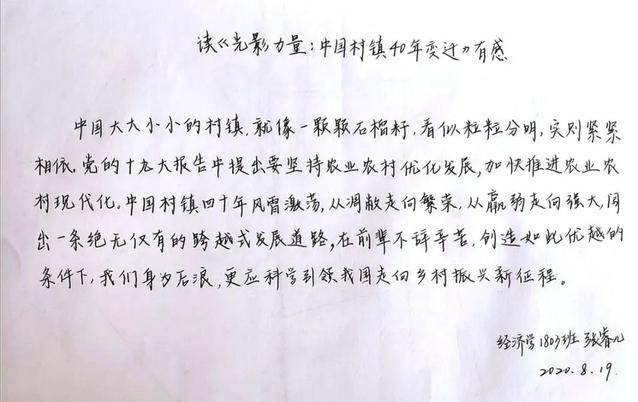 读《光影力量：中国村镇40年变迁》有感
中国大大小小的村镇，就像一颗颗石榴籽，看似粒粒分明，实则紧紧
相依。党的十九大报告中提出要坚持农业农村优化发展，加快推进农业农
村现代化。中国村镇四十年风雷激荡，从凋敝走向繁荣，从羸弱走向强大，闯
出一条绝无仅有的跨越式发展道路，在前辈不辞辛苦，创造如此优越的
条件下，我们身为后浪，更应科学引领我国走向乡村振兴新征程。
经济学1803班 张睿儿
2020.8.19.